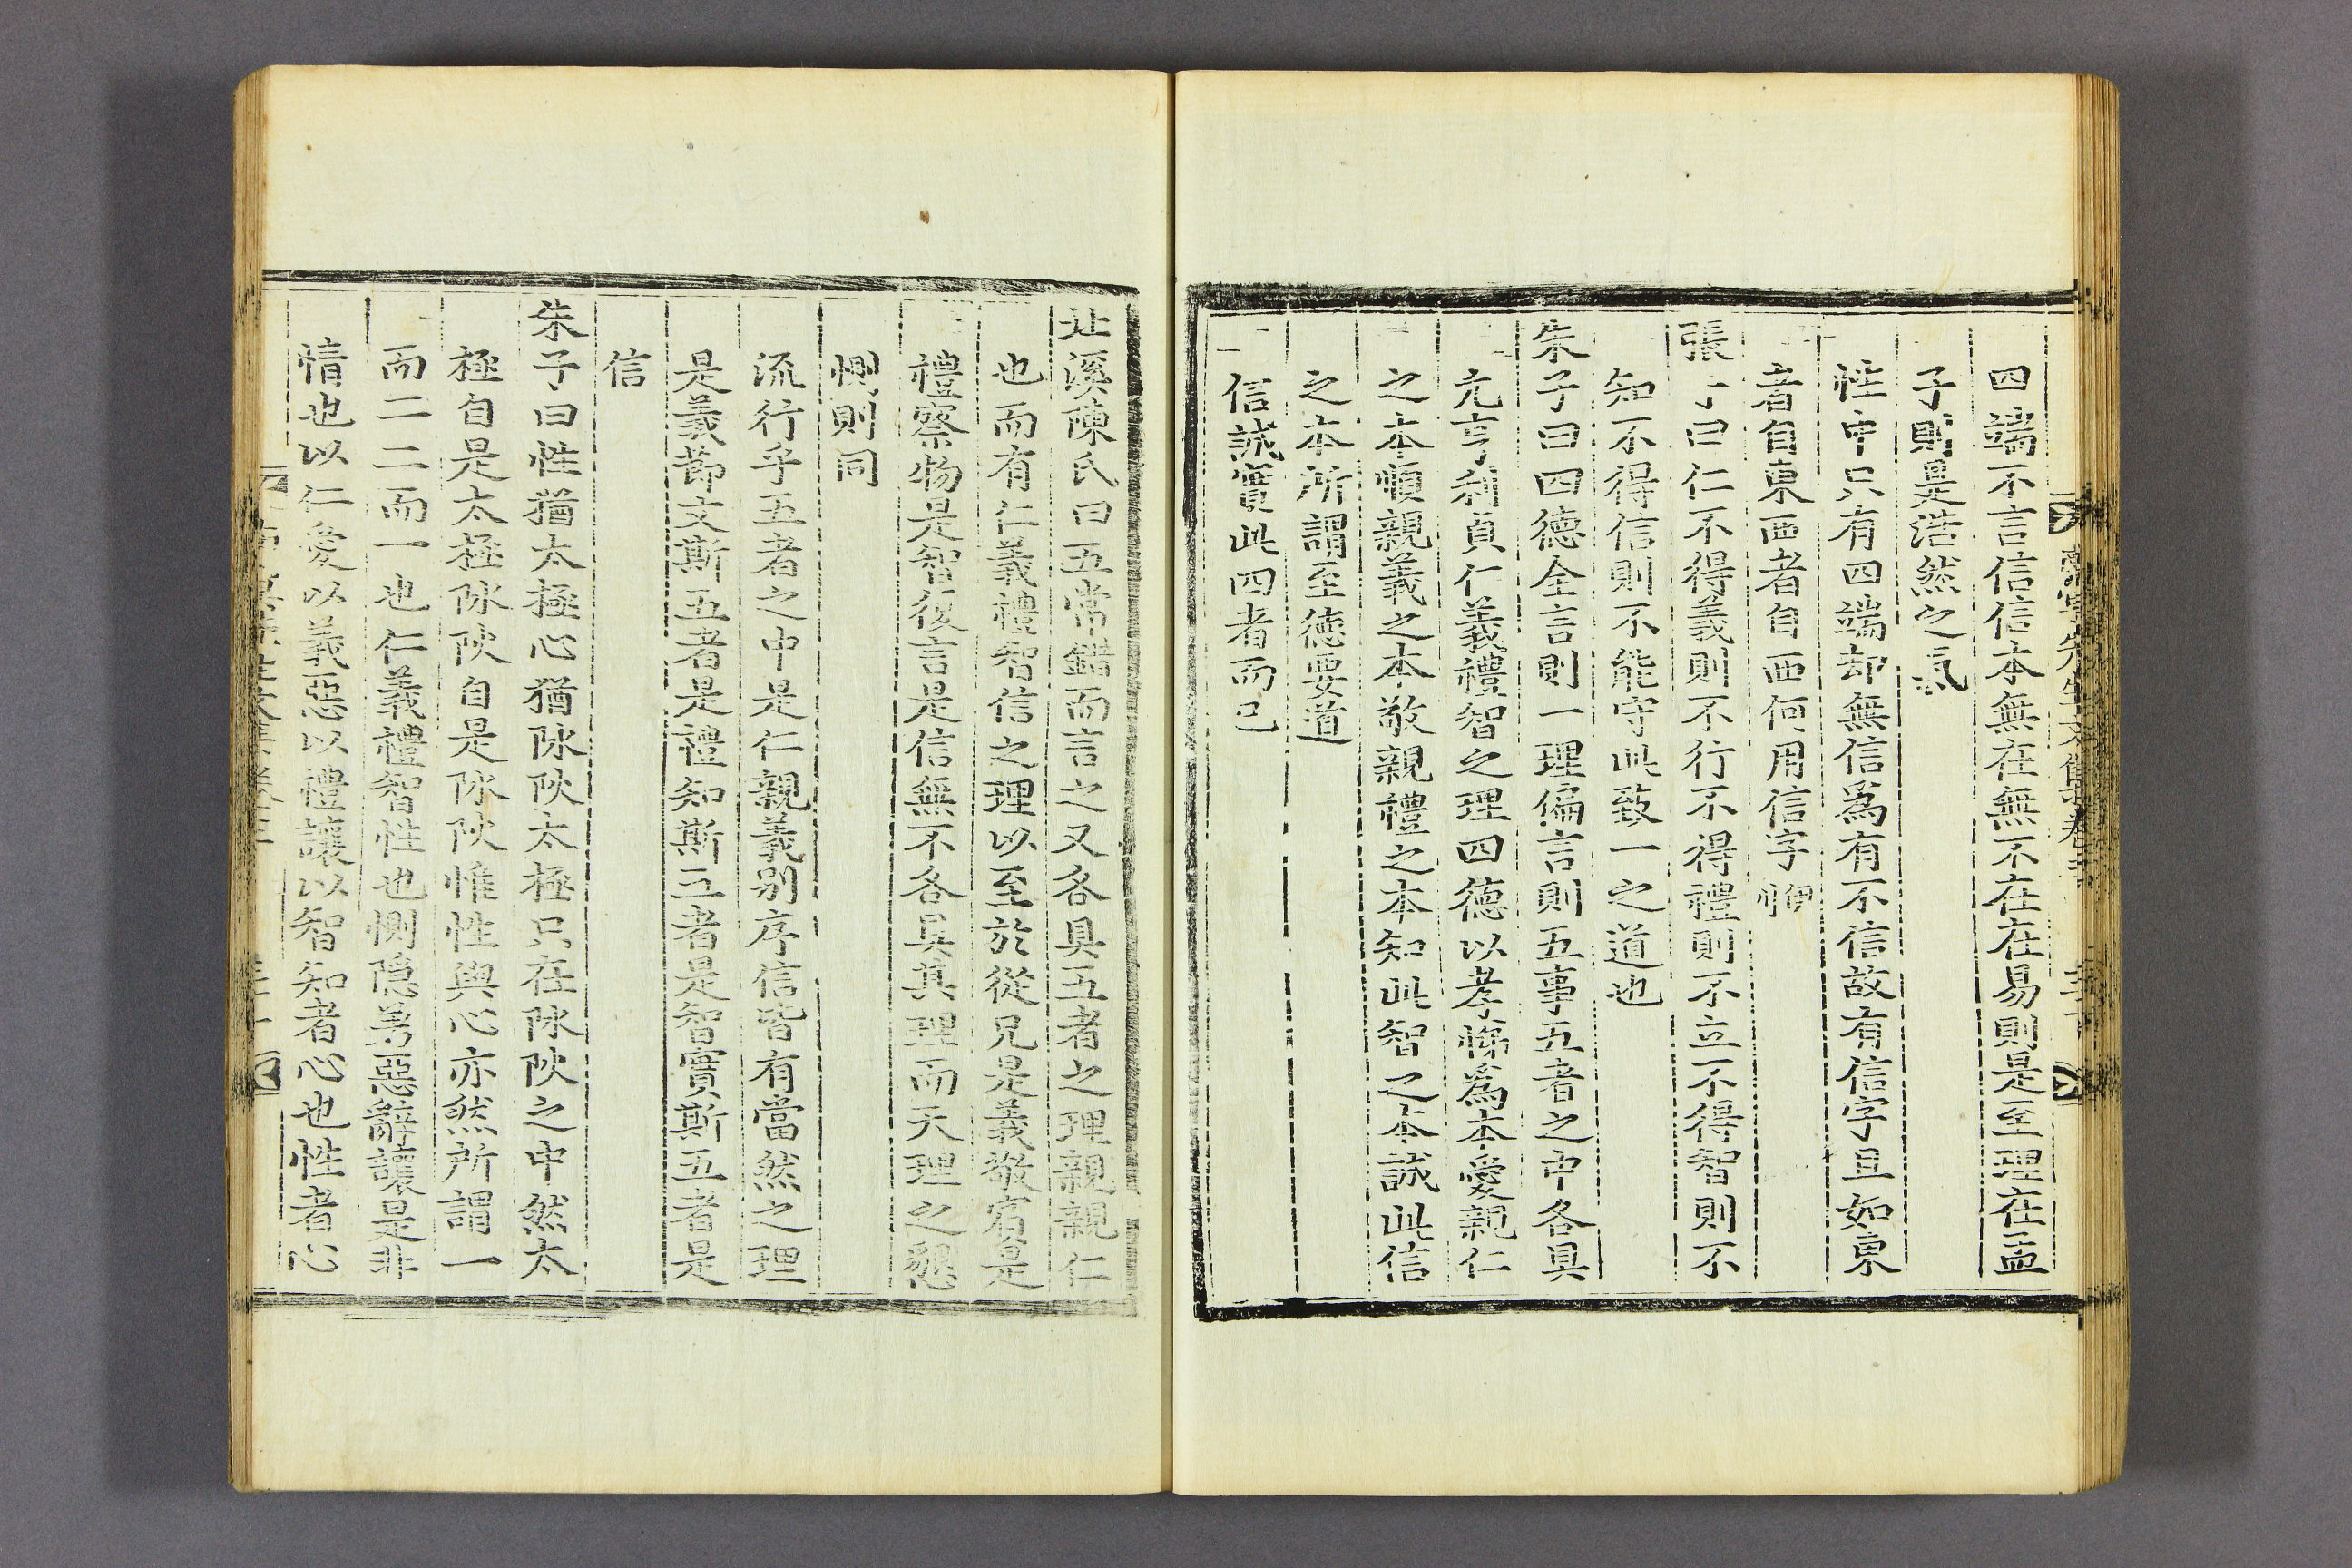 四端不言信信本無在無不在在易則是至理在孟
子則是浩然之氣
性中只有四端却無信爲有不信故有信字且如東
者自東西者自西何用信字
張子曰仁不得義則不行不得禮則不立不得智則不
知不得信則不能守此致一之道也
朱子曰四德全言則一理偏言則五事五者之中各具
元亨利貞仁義禮智之理四德以孝悌爲本愛親仁
之本順親義之本敬親禮之本知此智之本誠此信
之本所謂至德要道
信誠實此四者而已
北溪陳氏曰五常錯而言之又各具五者之理親親仁
也而有仁義禮智信之理以至於從兄是義敬賓是
禮察物是智復言是信無不各具其理而天理之懇
惻則同
流行乎五者之中是仁親義別序信皆有當然之理
是義節文斯五者是禮知斯五者是智實斯五者是
信
朱子曰性猶太極心猶陰陽太極只在陰陽之中然太
極自是太極陰陽自是陰陽惟性與心亦然所謂一
而二二而一也仁義禮智性也惻隱羞惡辭讓是非
情也以仁愛以義惡以禮讓以智知者心也性者心